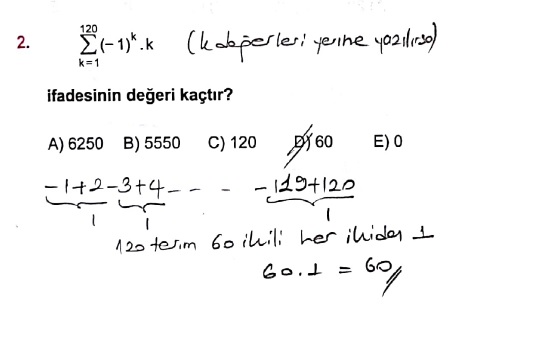 2. 120
∑ (-1)^k . k (k değerleri yerine yazılırsa)
k=1
ifadesinin değeri kaçtır?
A) 6250 B) 5550 C) 120 D) 60 E) 0
-1+2-3+4- - - - -119+120
1 1 1
120 terim 60 ikili her ikiden 1
60.1 = 60